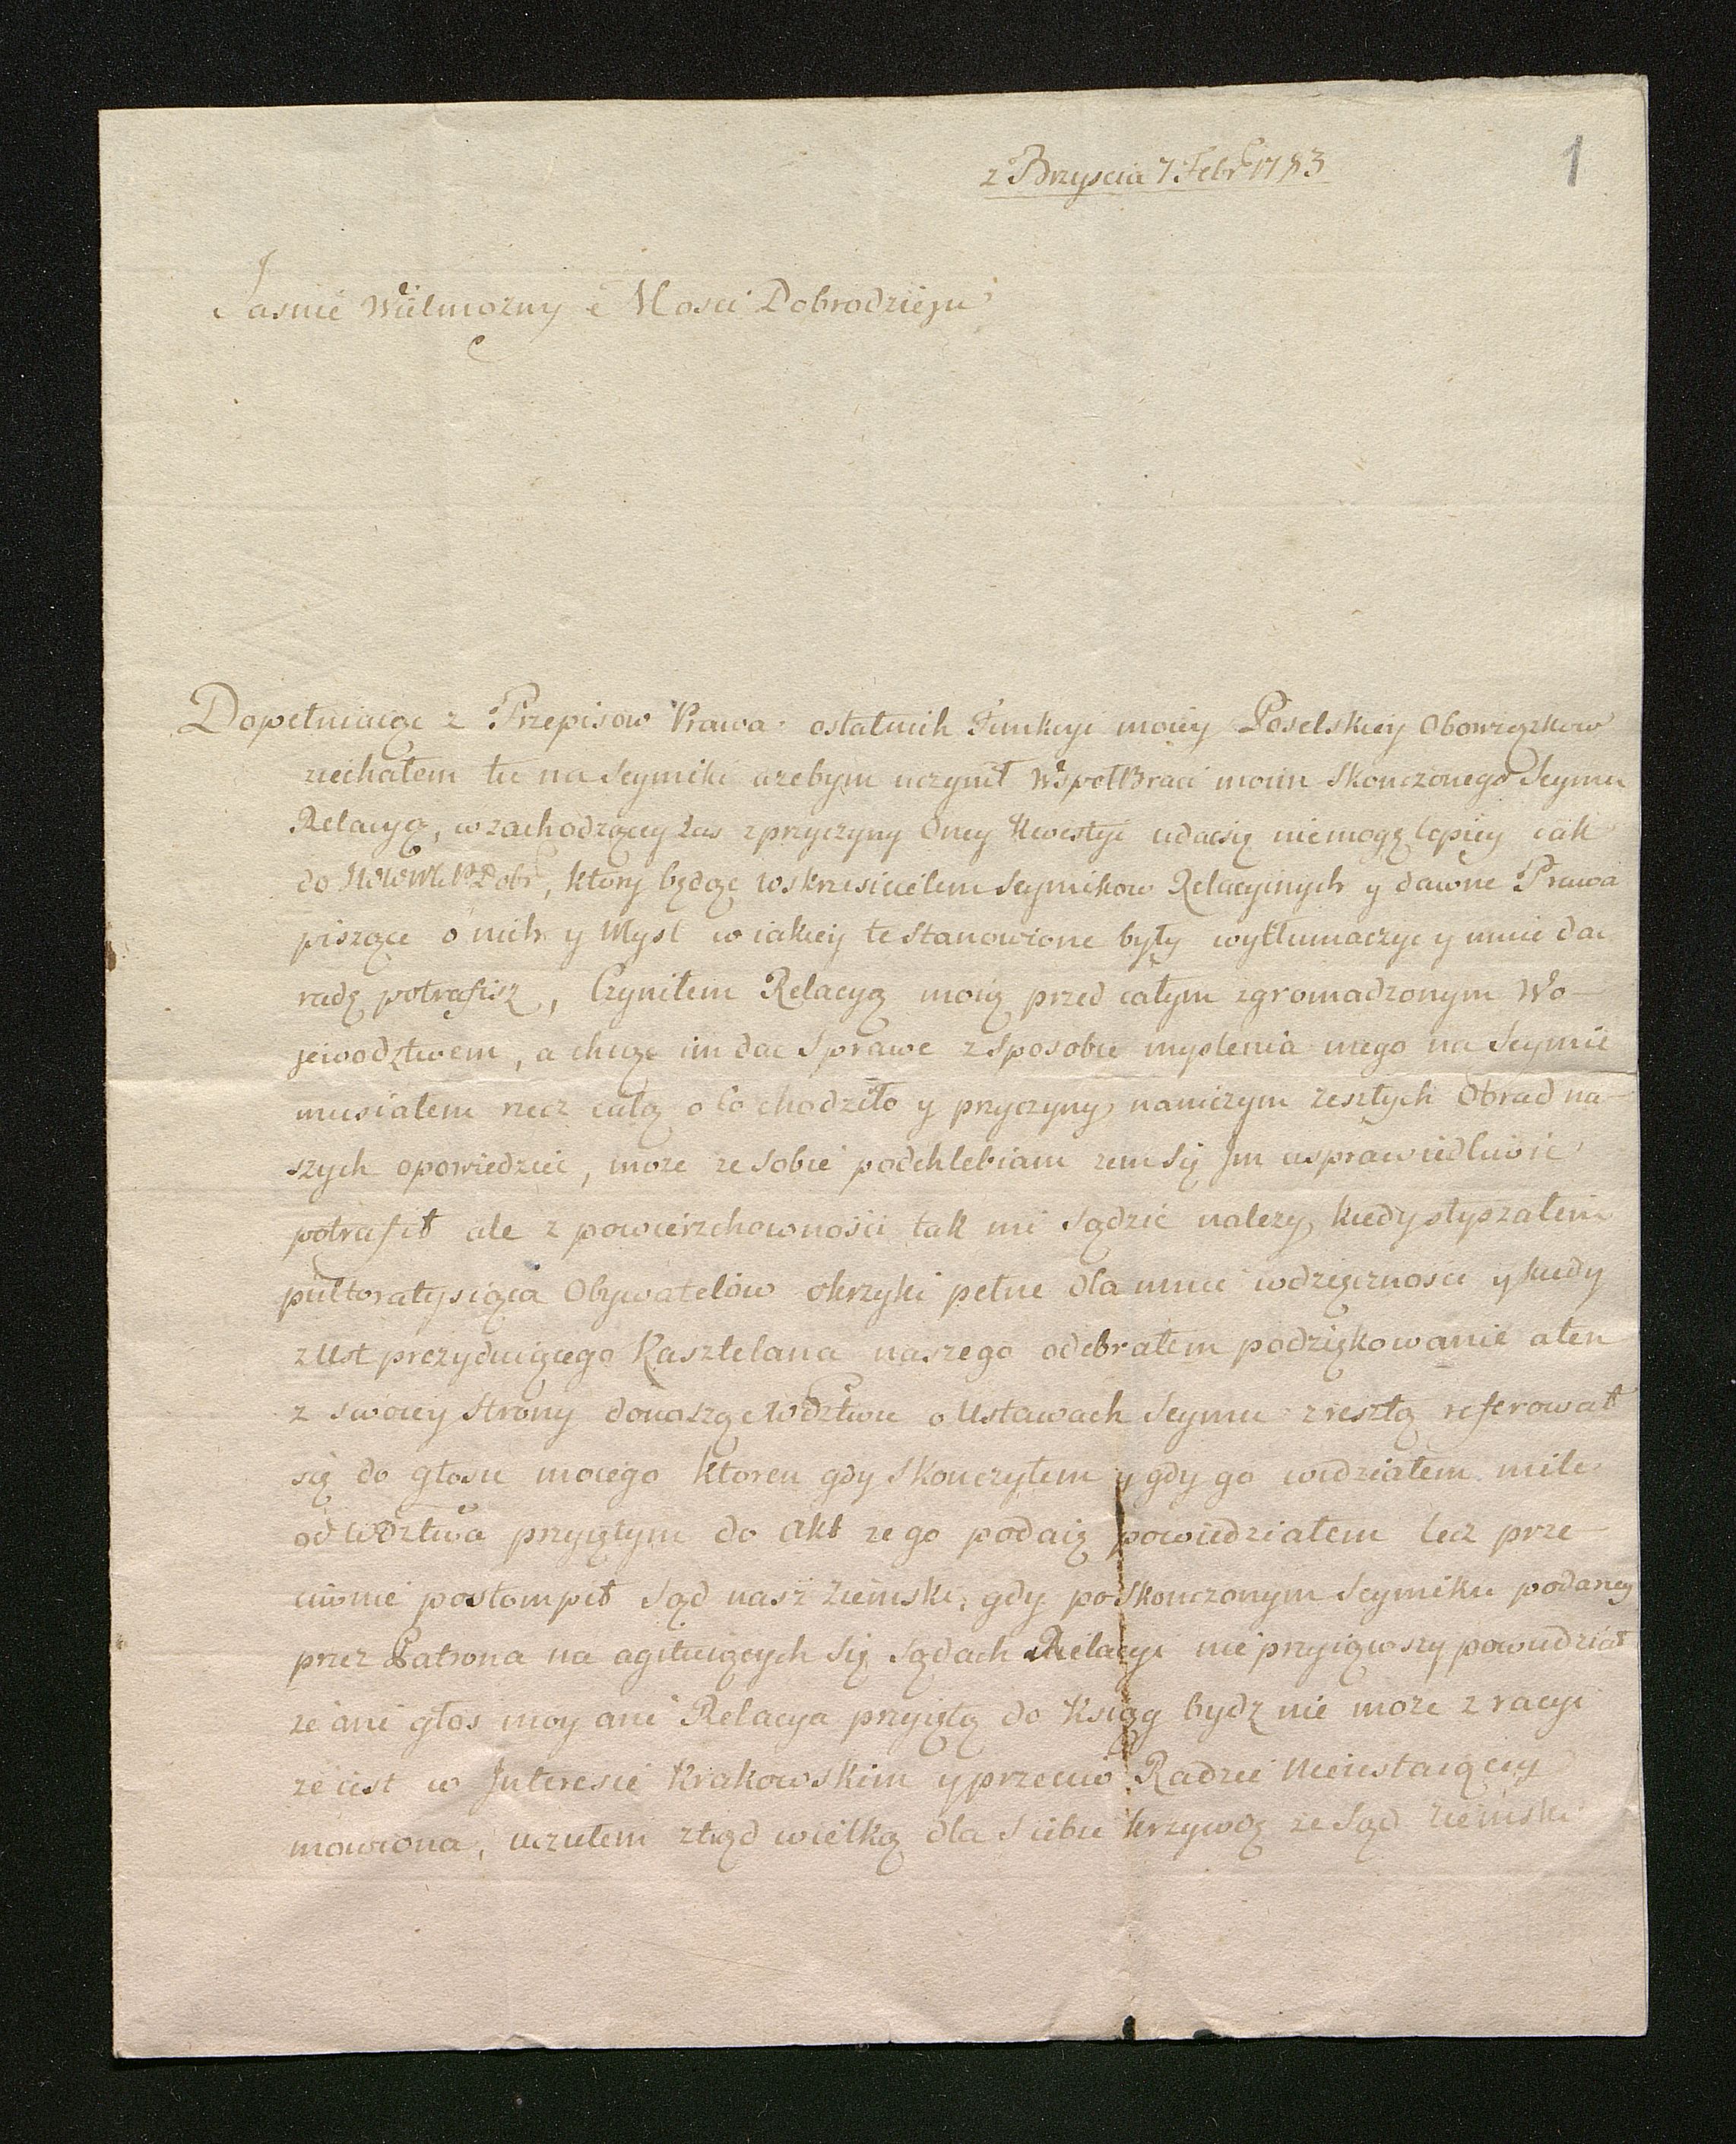 z Brzyscia 7 Febr 1783
1
Jasnie Wielmozny Mosci Dobrodzieju
Dopełniaiąc z Przepisow Prawa ostatnich Funkcyi moiey Poselskiey Obowiązkow
ziechałem tu na Seymiki azebym uczynił WspołBraci moim skonczonego Seymu
Relacyą, w zachodzącey zas z przyczyny Oney Kwestyi udac się nie mogę lepiey iak
do Dobr, ktory będąc wskrzesicielem Seymikow Relacyinych y dawne Prawa
piszące o nich y Mysl w iakiey te stanowione były wytłumaczyc y mnie dac
radę potrafisz, Czyniłem Relacyą moią przed całym zgromadzonym Wo-
jewodztwem, a chcąc im dac Sprawe z sposobu myslenia mego na Seymie
musiałem rzecz całą o co chodziło y przyczyny naniczym zeszłych Obrad na-
szych opowiedziec, moze ze sobie podchlebiam zem się Jm usprawiedliwic
potrafił ale z powierzchownosci tak mi sądzic nalezy, kiedy słyszałem
pułtoratysiąca Obywatelow okrzyki pełne dla mnie wdzięcznosci y kiedy
z Ust prezyduiącego Kasztelana naszego odebrałem podziękowanie a ten
z swoiey strony donosząc Wdztwu o Ustawach Seymu z resztą referował
się do głosu moiego ktoren gdy skonczyłem y gdy go widziałem mile
od Wdztwa przyiętym do Akt ze go podaię powiedziałem lecz prze-
ciwnie postompił Sąd nasz Ziemski, gdy po skonczonym Seymiku podaney
przez Patrona na agituiących się Sądach Relacyi nie przyiąwszy powiedział
ze ani głos moy ani Relacya przyiętą do Ksiąg bydz nie moze z racyi
ze iest w Interesie Krakowskim y przeciw Radzie Nieustaiącey
mowiona, uczułem ztąd wielką dla siebie krzywdę ze Sąd Ziemski